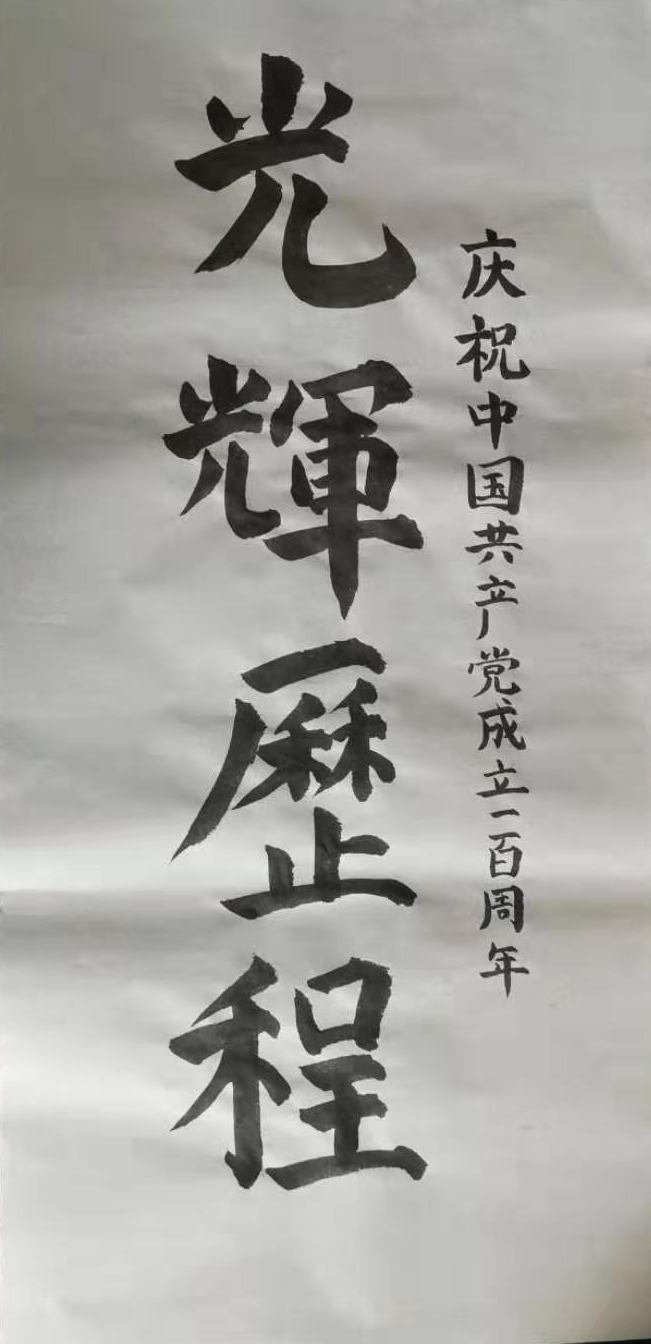 庆祝中国共产党成立一百周年
光輝歷程